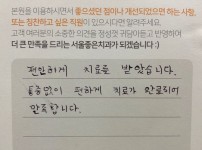 본원을 이용하시면서 좋으셨던 점이나 개선되었으면 하는 사항,
또는 칭찬하고 싶은 직원이 있으시다면 알려주세요.
고객 여러분의 소중한 의견을 정성껏 귀담아듣고, 반영하여
더 큰 만족을 드리는 서울좋은치과가 되겠습니다 :)
편안하게 치료를 받았습니다.
통증없이 편하게 치료가 완료되어
만족합니다.